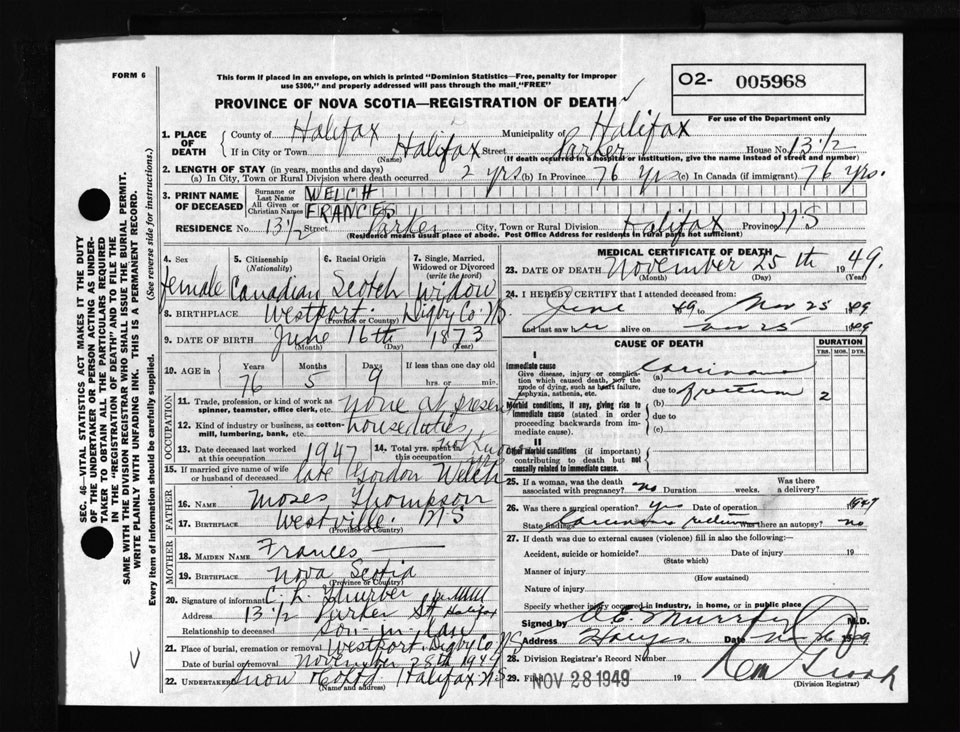 FORM 6
This form if placed in an envelope, on which is printed "Dominion Statistics—Free, penalty for improper
use $300," and properly addressed will pass through the mail, "FREE"
O2- 005968
For use of the Department only
PROVINCE OF NOVA SCOTIA—REGISTRATION OF DEATH
1. PLACE OF DEATH
County of Halifax Municipality of Halifax
If in City or Town Halifax Street Parker House No. 13 1/2
(Name) (If death occurred in a hospital or institution, give the name instead of street and number)
2. LENGTH OF STAY (in years, months and days)
(a) In City, Town or Rural Division where death occurred 2 yrs (b) In Province 76 yrs (c) In Canada (if immigrant) 76 yrs.
3. PRINT NAME OF DECEASED
Surname or Last Name WELCH
All Given or Christian Names FRANCES
RESIDENCE No. 13 1/2 Street Parker City, Town or Rural Division Halifax Province N S
(Residence means usual place of abode. Post Office Address for residents in rural parts not sufficient)
4. Sex female
5. Citizenship (Nationality) Canadian
6. Racial Origin Scotch
7. Single, Married, Widowed or Divorced (write the word) Widow
8. BIRTHPLACE Westport. Digby Co. N.S.
(Province or Country)
9. DATE OF BIRTH June 16th 1873
(Month) (Day) (Year)
10. AGE in Years 76 Months 5 Days 9 If less than one day hrs. or min.
OCCUPATION
11. Trade, profession, or kind of work as spinner, teamster, office clerk, etc. none at present
12. Kind of industry or business, as cotton-mill, lumbering, bank, etc. house duties
13. Date deceased last worked at this occupation 1947
14. Total yrs. spent in this occupation
15. If married give name of wife or husband of deceased late Gordon Welch
FATHER
16. NAME Moses Thompson
17. BIRTHPLACE Westville. N S
(Province or Country)
MOTHER
18. MAIDEN NAME Frances —
19. BIRTHPLACE Nova Scotia
(Province or Country)
20. Signature of informant C. L. Thurber
Address 13 1/2 Parker St Halifax
Relationship to deceased son-in-law
21. Place of burial, cremation or removal Westport. Digby Co. N S
Date of burial or removal November 28th 1949
22. Undertaker Snow Halifax N.S.
(Name and address)
MEDICAL CERTIFICATE OF DEATH
23. DATE OF DEATH November 25th 1949.
(Month) (Day) (Year)
24. I HEREBY CERTIFY that I attended deceased from:
June 1949 to Nov 25 1949
and last saw her alive on Nov 25 1949
CAUSE OF DEATH
DURATION
YRS. MOS. DYS.
I
Immediate cause
Give disease, injury or complication which caused death, not the mode of dying, such as heart failure, asphyxia, asthenia, etc.
(a) Carcinoma
due to of rectum 2
(b)
Morbid conditions, if any, giving rise to immediate cause (stated in order proceeding backwards from immediate cause).
due to
(c)
II
Other morbid conditions (if important) contributing to death but not causally related to immediate cause.
25. If a woman, was the death associated with pregnancy? no Duration weeks. Was there a delivery?
26. Was there a surgical operation? yes Date of operation 1947
State findings Carcinoma rectum Was there an autopsy? no
27. If death was due to external causes (violence) fill in also the following:
Accident, suicide or homicide? Date of injury 19
(State which)
Manner of injury
(How sustained)
Nature of injury
Specify whether injury occurred in industry, in home, or in public place
Signed by A. E. Murray M.D.
Address Halifax Date Nov 26 1949
28. Division Registrar's Record Number
29. Filed NOV 28 1949 19
(Division Registrar)
SEC. 46—VITAL STATISTICS ACT MAKES IT THE DUTY
OF THE UNDERTAKER OR PERSON ACTING AS UNDER-
TAKER TO OBTAIN ALL THE PARTICULARS REQUIRED
IN THE "REGISTRATION OF DEATH" AND TO FILE THE
SAME WITH THE DIVISION REGISTRAR WHO SHALL ISSUE THE BURIAL PERMIT.
WRITE PLAINLY WITH UNFADING INK. THIS IS A PERMANENT RECORD.
Every item of information should be carefully supplied. (See reverse side for instructions.)